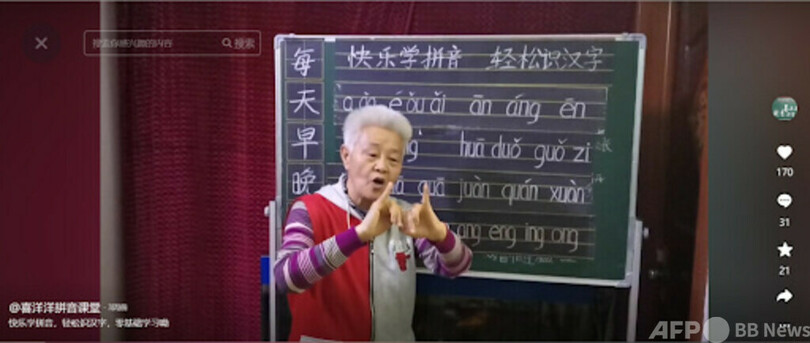 搜索你感兴趣的内容 搜索
快乐学拼音 轻松识汉字
每天早晚
é ǒu ǎi ān áng ēn
huā duǒ guǒ zi
guā juàn quán xuàn
ang eng ing ong
170
31
21
@喜洋洋拼音课堂
快乐学拼音，轻松识汉字，零基础学习
AFP BB News